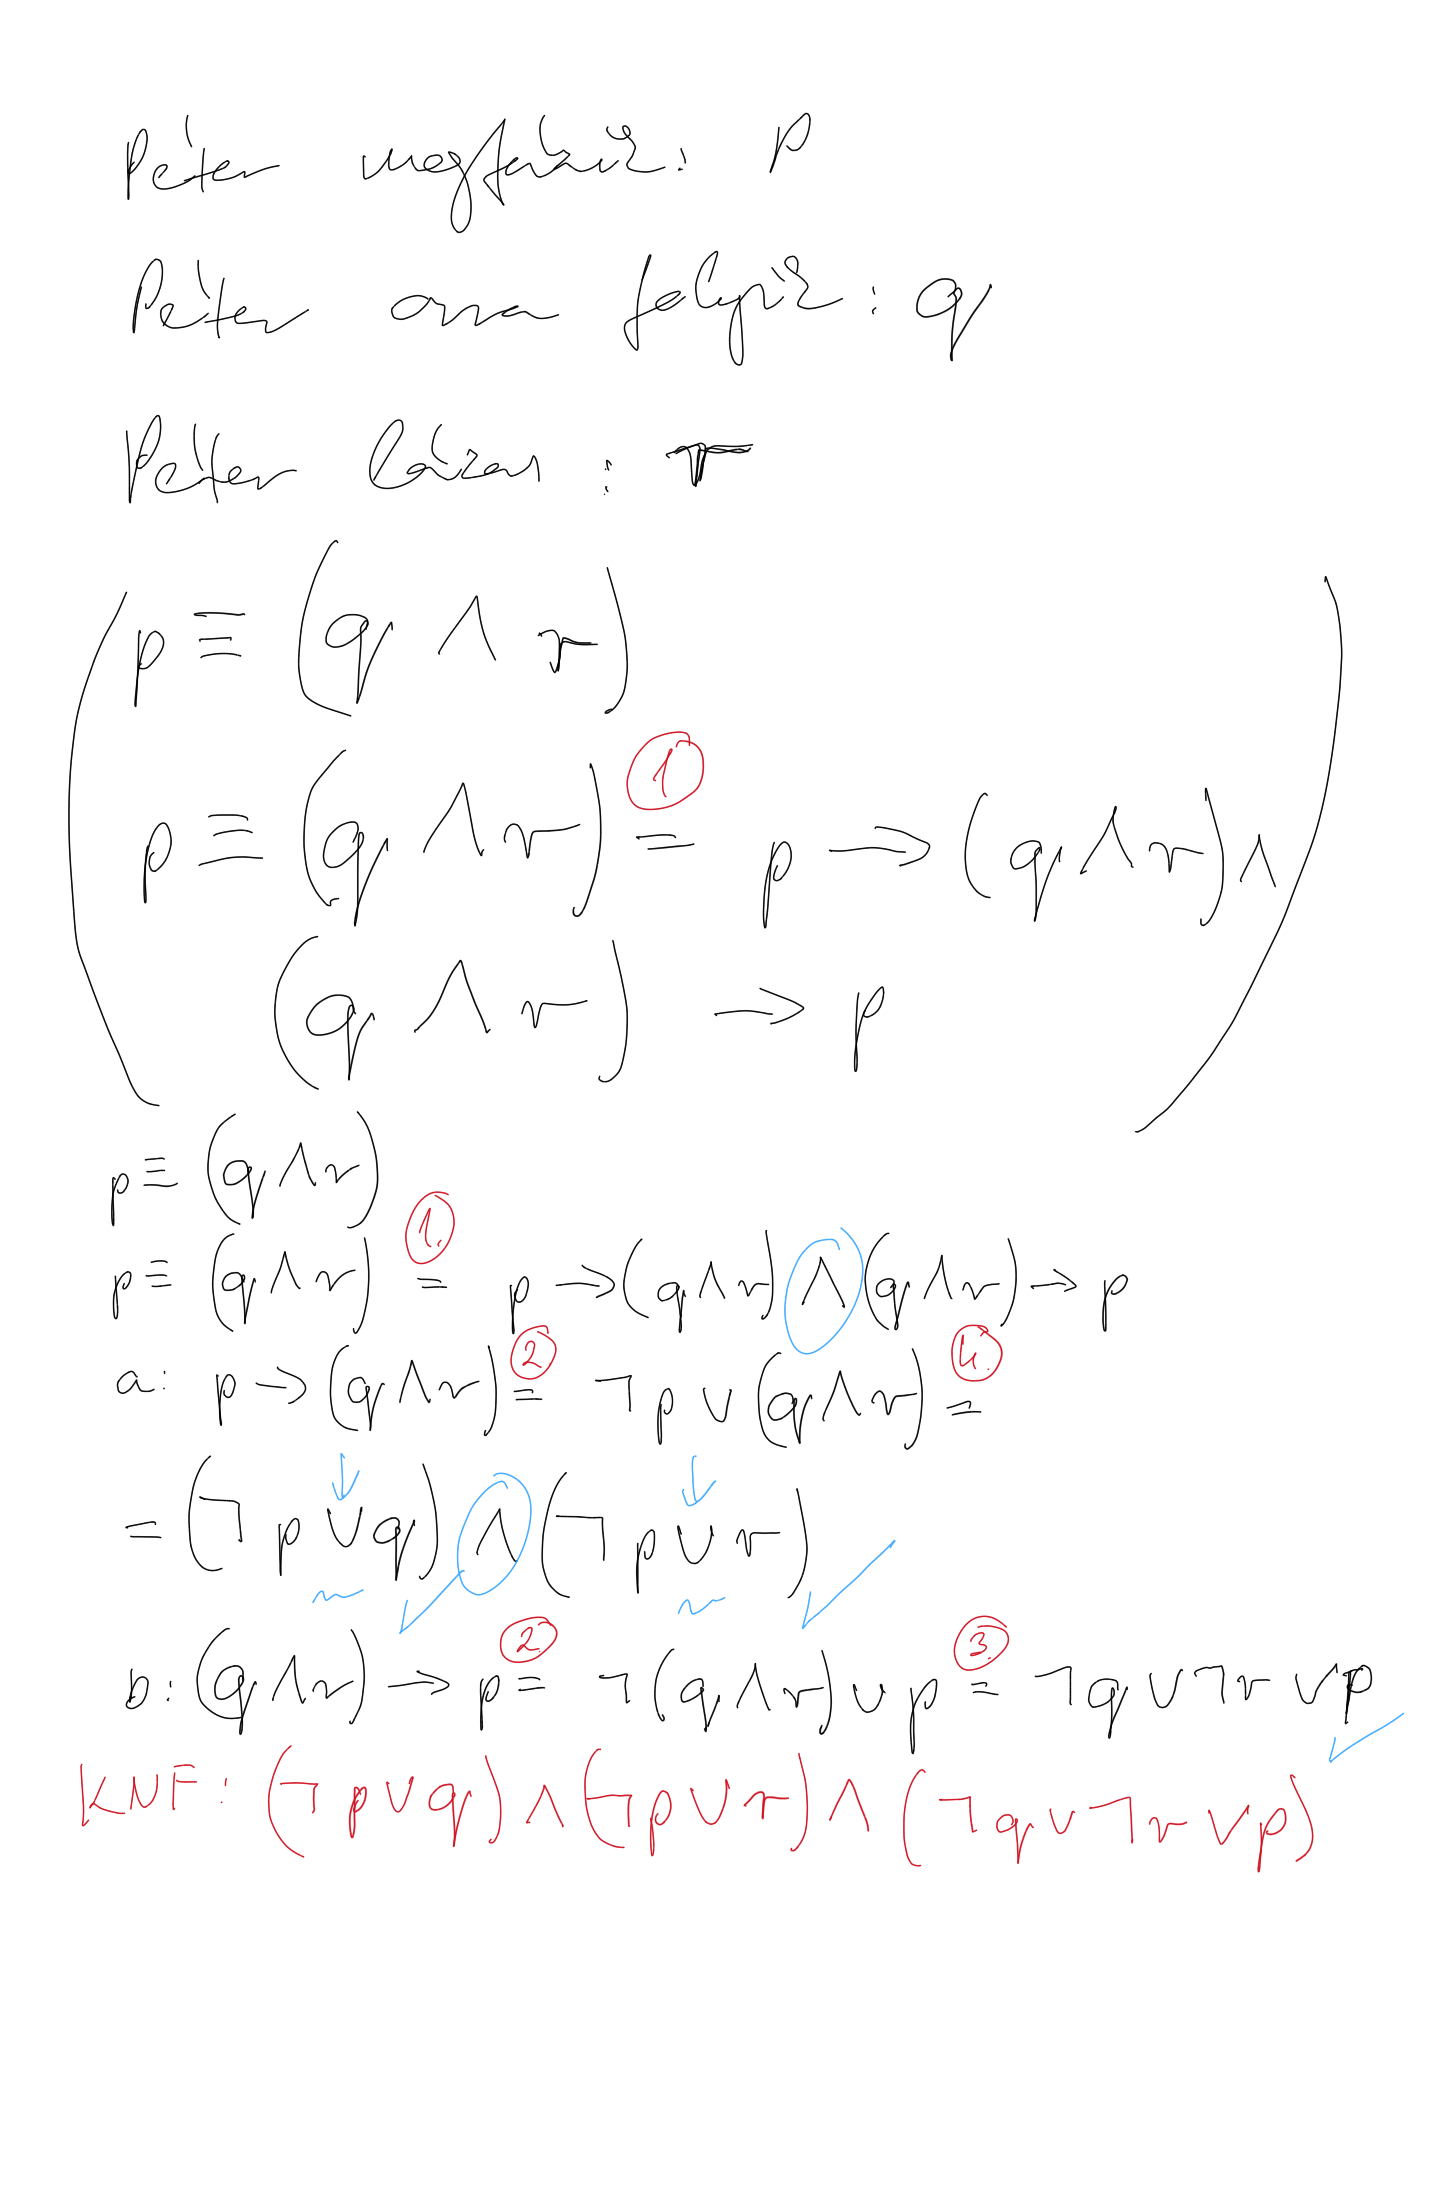 Péter megfázik: p
Péter orra folyik: q
Péter lázas: r
(p ≡ (q ∧ r)
①
p ≡ (q ∧ r) = p → (q ∧ r) ∧
(q ∧ r) → p)
p ≡ (q ∧ r)
①.
p ≡ (q ∧ r) = p → (q ∧ r) ∧ (q ∧ r) → p
② ④.
a: p → (q ∧ r) = ¬p ∨ (q ∧ r) =
= (¬p ∨ q) ∧ (¬p ∨ r)
②. ③.
b: (q ∧ r) → p = ¬(q ∧ r) ∨ p = ¬q ∨ ¬r ∨ p
KNF: (¬p ∨ q) ∧ (¬p ∨ r) ∧ (¬q ∨ ¬r ∨ p)